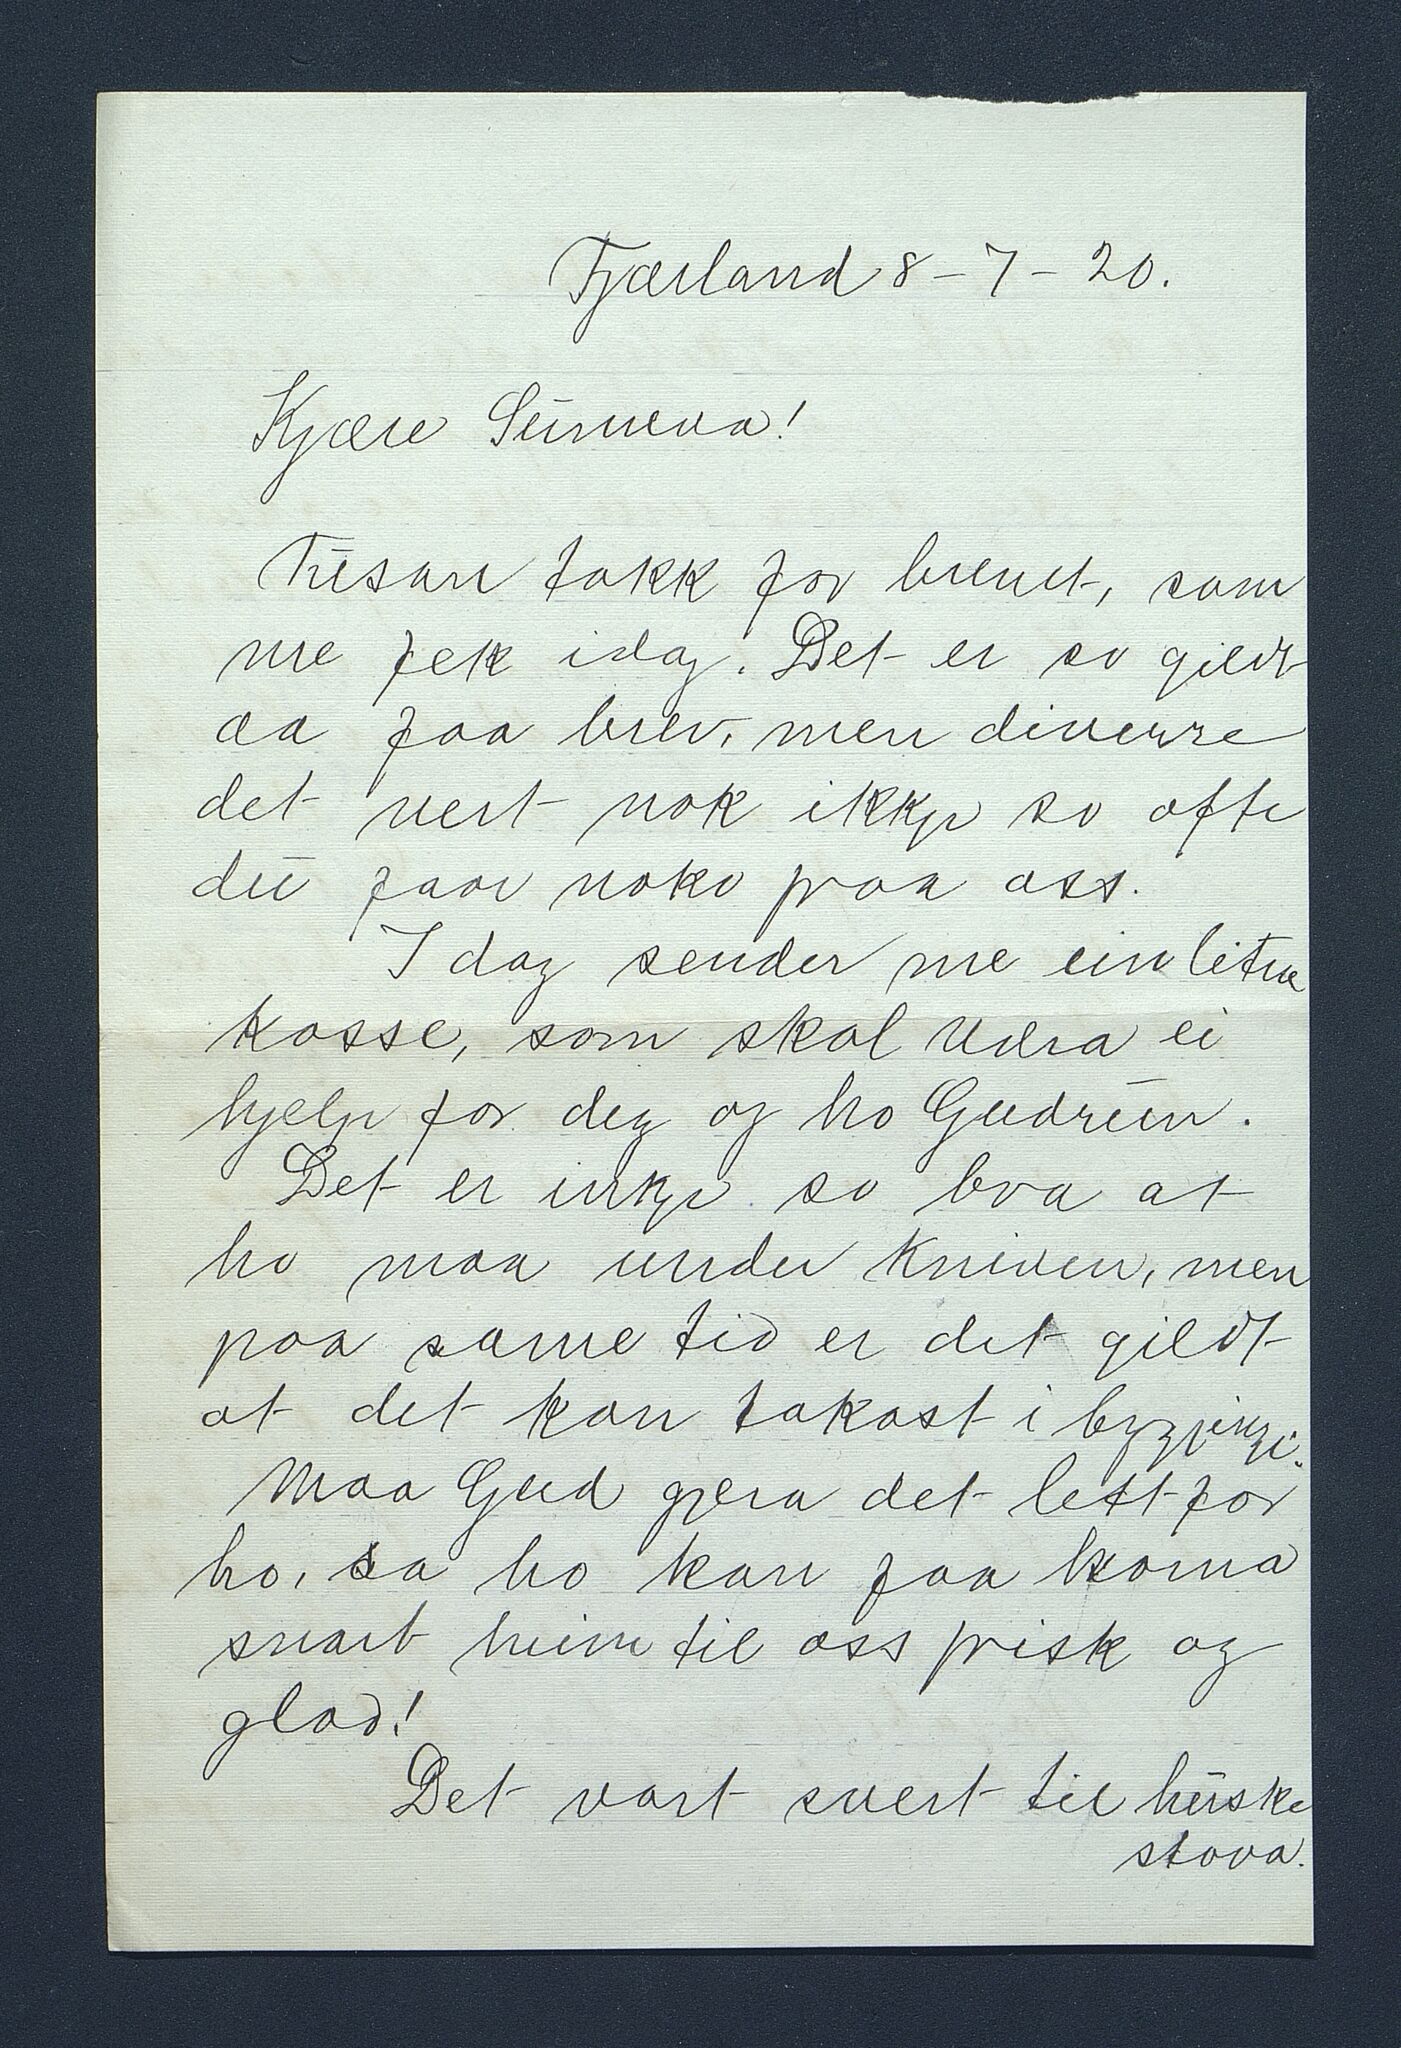 Fjærland 8-7-20.
Kjære Sunneva!
Tusan takk for brevet, som
me fek idag. Det er so gildt
aa faa brev, men diverre
det vert nok ikkje so ofte
du faar noko fraa oss.
I dag sender me ein liten
kasse, som skal vdra ei
hjelp for deg og ho Gudrun.
Det er inkje so bra at
ho maa under kniven, men
paa same tid er det gildt
at det kan takast i bygjingi.
Maa Gud gjera det lett for
ho, sa ho kan faa koma
snart heim til oss frisk og
glad!
Det vart svert til huske
stova.